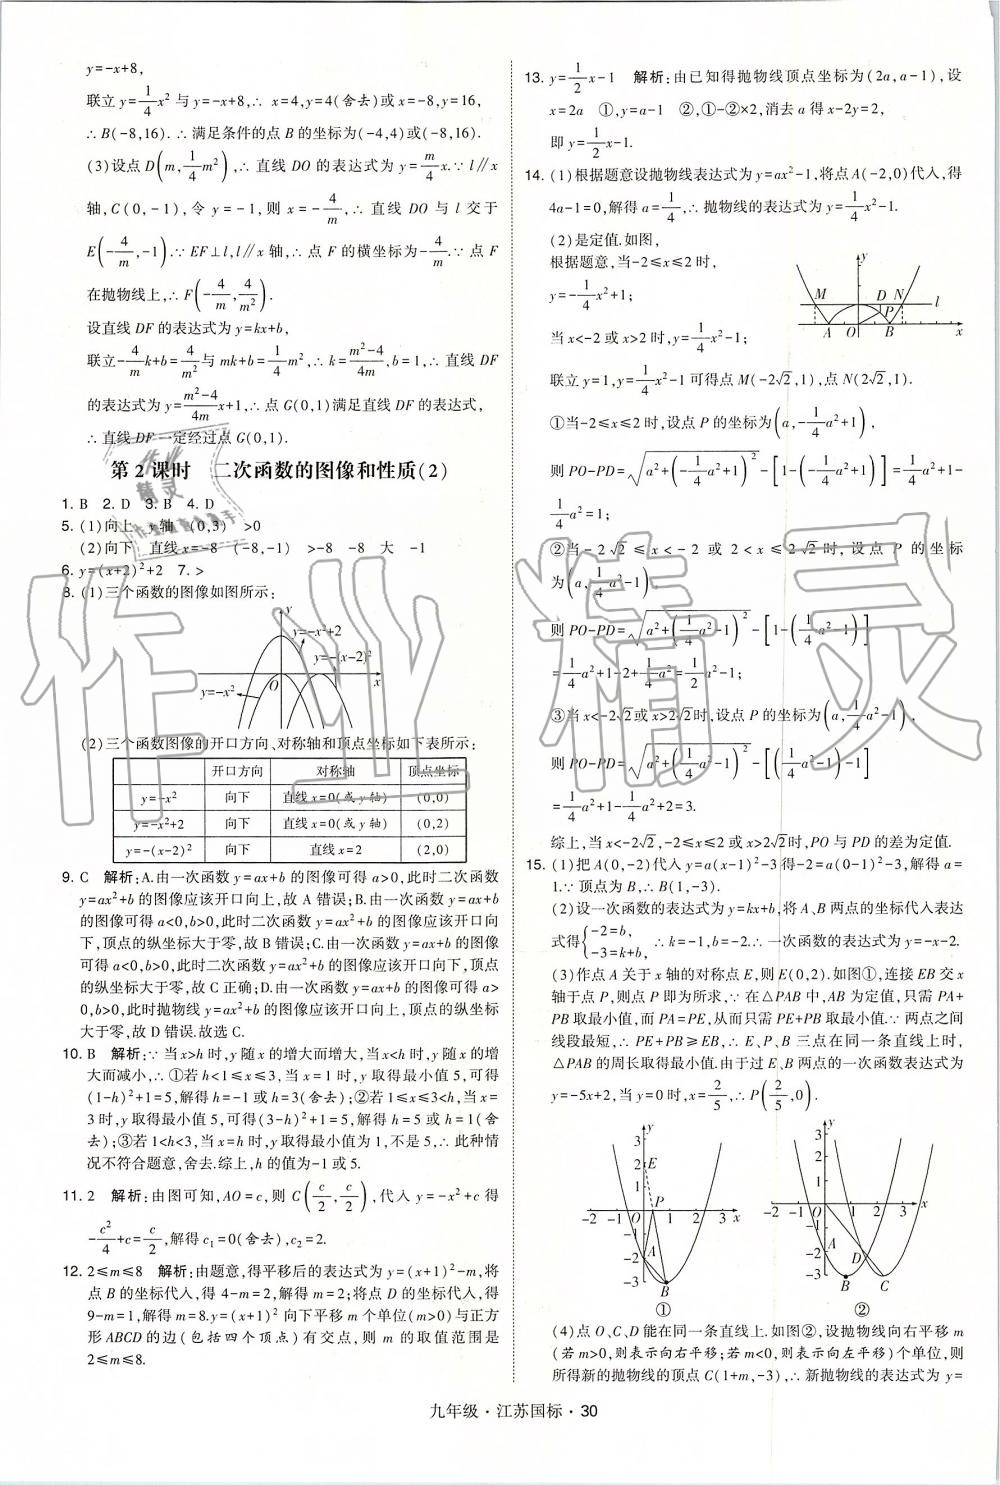 y=-x+8,
联立y=1/4x²与y=-x+8,∴ x=4,y=4(舍去)或x=-8,y=16,
∴B(-8,16). ∴满足条件的点B的坐标为(-4,4)或(-8,16).
(3)设点D(m,1/4m²),∴直线DO的表达式为y=m/4x.∵l∥x
轴,C(0,-1),令y=-1,则x=-4/m,∴直线DO与l交于
E(-4/m,-1).∵EF⊥l,l∥x轴,∴点F的横坐标为-4/m.∵点F
在抛物线上,∴F(-4/m,4/m²).
设直线DF的表达式为y=kx+b,
联立-4/mk+b=4/m²与mk+b=1/4m²,∴k=(m²-4)/4m,b=1,∴直线DF
的表达式为y=(m²-4)/4mx+1,∴点G(0,1)满足直线DF的表达式,
∴直线DF一定经过点G(0,1).
第2课时 二次函数的图像和性质(2)
1. B 2. D 3. B 4. D
5. (1)向上 y轴 (0,3) >0
(2)向下 直线x=-8 (-8,-1) >-8 -8 大 -1
6. y=(x+2)²+2 7. >
8. (1)三个函数的图像如图所示:
y
y=-x²+2
y=-(x-2)²
O
x
y=-x²
(2)三个函数图像的开口方向、对称轴和顶点坐标如下表所示:
开口方向 对称轴 顶点坐标
y=-x² 向下 直线x=0(或y轴) (0,0)
y=-x²+2 向下 直线x=0(或y轴) (0,2)
y=-(x-2)² 向下 直线x=2 (2,0)
9. C 解析:A.由一次函数y=ax+b的图像可得a>0,此时二次函数
y=ax²+b的图像应该开口向上,故A错误;B.由一次函数y=ax+b
的图像可得a<0,b>0,此时二次函数y=ax²+b的图像应该开口向
下,顶点的纵坐标大于零,故B错误;C.由一次函数y=ax+b的图像
可得a<0,b>0,此时二次函数y=ax²+b的图像应该开口向下,顶点
的纵坐标大于零,故C正确;D.由一次函数y=ax+b的图像可得a>
0,b>0,此时抛物线y=ax²+b的图像应该开口向上,顶点的纵坐标
大于零,故D错误.故选C.
10. B 解析:∵当x>h时,y随x的增大而增大,当x<h时,y随x的增
大而减小,∴①若h<1≤x≤3,当x=1时,y取得最小值5,可得
(1-h)²+1=5,解得h=-1或h=3(舍去);②若1≤x≤3<h,当x=
3时,y取得最小值5,可得(3-h)²+1=5,解得h=5或h=1(舍
去);③若1<h<3,当x=h时,y取得最小值为1,不是5,∴此种情
况不符合题意,舍去.综上,h的值为-1或5.
11. 2 解析:由图可知,AO=c,则C(c/2,c/2),代入y=-x²+c得
-c²/4+c=c/2,解得c₁=0(舍去),c₂=2.
12. 2≤m≤8 解析:由题意,得平移后的表达式为y=(x+1)²-m,将
点B的坐标代入,得4-m=2,解得m=2;将点D的坐标代入,得
9-m=1,解得m=8.y=(x+1)²向下平移m个单位(m>0)与正方
形ABCD的边(包括四个顶点)有交点,则m的取值范围是
2≤m≤8.
13. y=1/2x-1 解析:由已知得抛物线顶点坐标为(2a,a-1),设
x=2a ①,y=a-1 ②,①-②×2,消去a得x-2y=2,
即y=1/2x-1.
14. (1)根据题意设抛物线表达式为y=ax²-1,将点A(-2,0)代入,得
4a-1=0,解得a=1/4,∴抛物线的表达式为y=1/4x²-1.
(2)是定值.如图,
根据题意,当-2≤x≤2时,
y=-1/4x²+1;
当x<-2或x>2时,y=1/4x²-1;
y
M D N l
P
A O B x
联立y=1,y=1/4x²-1可得点M(-2√2,1),点N(2√2,1).
①当-2≤x≤2时,设点P的坐标为(a,-1/4a²+1),
则PO-PD=√(a²+(-1/4a²+1)²)-[1-(-1/4a²+1)]=1/4a²+1-
1/4a²=1;
②当-2√2≤x<-2或2<x≤2√2时,设点P的坐标
为(a,1/4a²-1)
则PO-PD=√(a²+(1/4a²-1)²)-[1-(1/4a²-1)]=
1/4a²+1-2+1/4a²=1/2a²-1;
③当x<-2√2或x>2√2时,设点P的坐标为(a,1/4a²-1),
则PO-PD=√(a²+(1/4a²-1)²)-[(1/4a²-1)-1]
=1/4a²+1-1/4a²+2=3.
综上,当x<-2√2,-2≤x≤2或x>2√2时,PO与PD的差为定值.
15. (1)把A(0,-2)代入y=a(x-1)²-3得-2=a(0-1)²-3,解得a=
1.∵顶点为B,∴B(1,-3).
(2)设一次函数的表达式为y=kx+b,将A、B两点的坐标代入表达
式得{-2=b, -3=k+b, ∴k=-1,b=-2.∴一次函数的表达式为y=-x-2.
(3)作点A关于x轴的对称点E,则E(0,2).如图①,连接EB交x
轴于点P,则点P即为所求,∵在△PAB中,AB为定值,只需PA+
PB取最小值,而PA=PE,从而只需PE+PB取最小值.∵两点之间
线段最短,∴PE+PB≥EB,∴E、P、B三点在同一条直线上时,
△PAB的周长取得最小值.由于过E、B两点的一次函数表达式为
y=-5x+2,当y=0时,x=2/5,∴P(2/5,0).
y
3
2 E
1
O P
-2 -1 1 2 3 x
-1
-2 A
-3 B
①
y
3
2
1
O
-2 -1 1 2 3 x
-1
A
-2 D
-3 B C
②
(4)点O、C、D能在同一条直线上.如图②,设抛物线向右平移m
(若m>0,则表示向右平移;若m<0,则表示向左平移)个单位,则
所得新的抛物线的顶点C(1+m,-3),∴新抛物线的表达式为y=
九年级·江苏国标·30
作业精灵